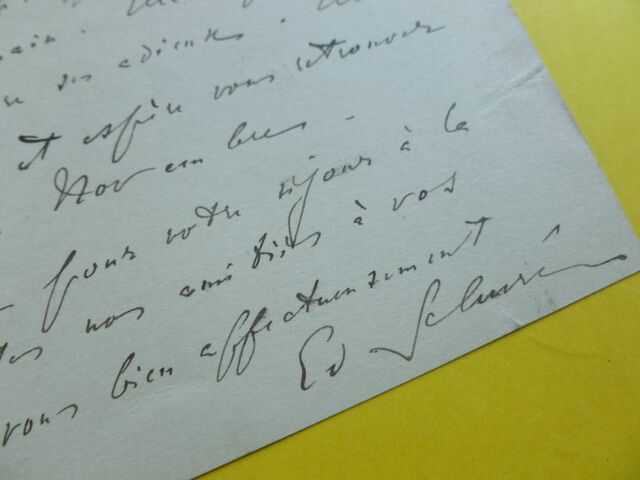 ses adieux.
et espère vous retrouver
Novembre -
pour votre séjour à la
nos amitiés à vos
vous bien affectueusement
Ed Schuré